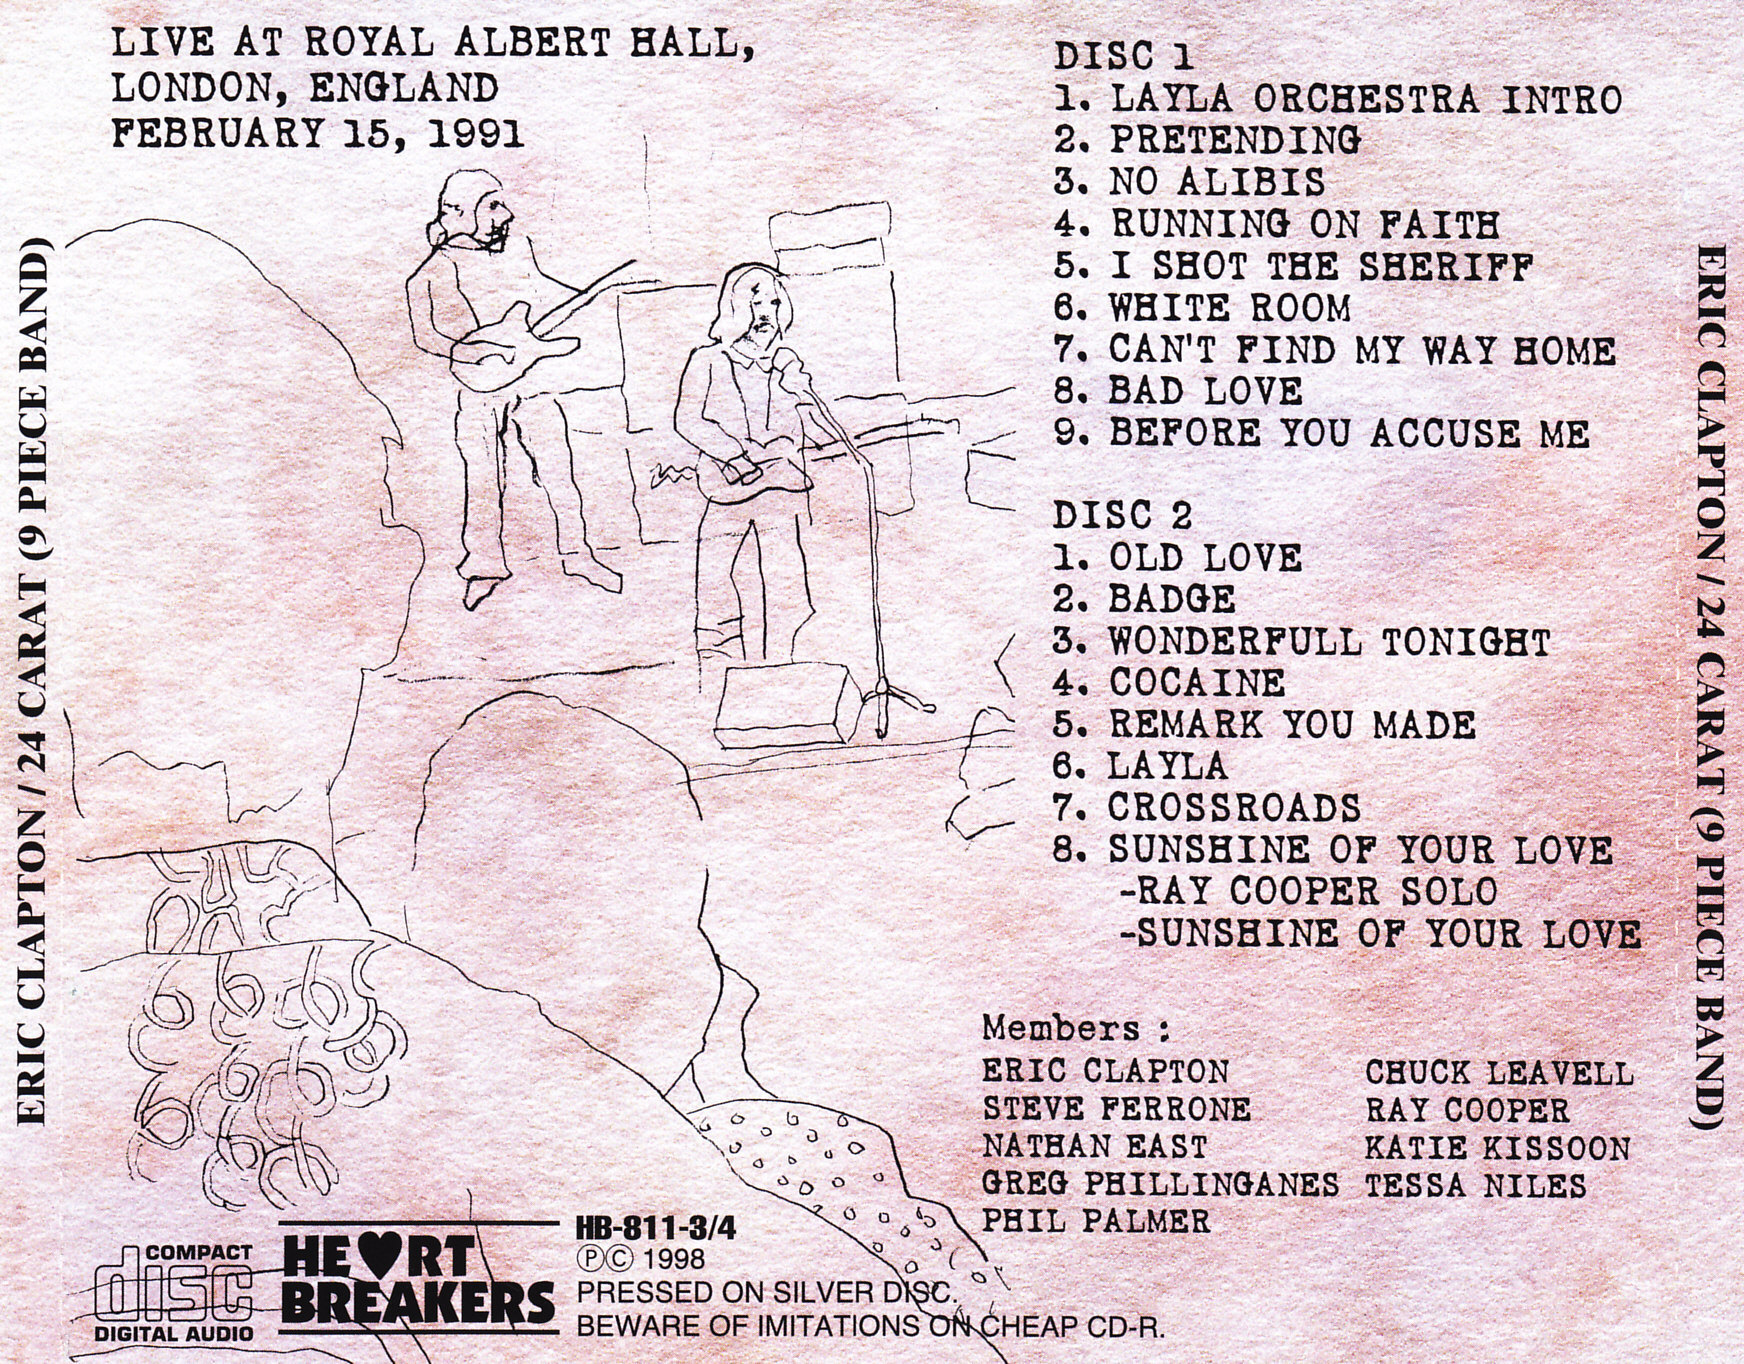 LIVE AT ROYAL ALBERT HALL,
LONDON, ENGLAND
FEBRUARY 15, 1991
DISC 1
1. LAYLA ORCHESTRA INTRO
2. PRETENDING
3. NO ALIBIS
4. RUNNING ON FAITH
5. I SHOT THE SHERIFF
6. WHITE ROOM
7. CAN'T FIND MY WAY HOME
8. BAD LOVE
9. BEFORE YOU ACCUSE ME
DISC 2
1. OLD LOVE
2. BADGE
3. WONDERFULL TONIGHT
4. COCAINE
5. REMARK YOU MADE
6. LAYLA
7. CROSSROADS
8. SUNSHINE OF YOUR LOVE
-RAY COOPER SOLO
-SUNSHINE OF YOUR LOVE
Members :
ERIC CLAPTON
STEVE FERRONE
NATHAN EAST
GREG PHILLINGANES
PHIL PALMER
CHUCK LEAVELL
RAY COOPER
KATIE KISSOON
TESSA NILES
COMPACT
disc
DIGITAL AUDIO
HE♥RT
BREAKERS
HB-811-3/4
ⓅⒸ 1998
PRESSED ON SILVER DISC.
BEWARE OF IMITATIONS ON CHEAP CD-R.
ERIC CLAPTON / 24 CARAT (9 PIECE BAND)
ERIC CLAPTON / 24 CARAT (9 PIECE BAND)